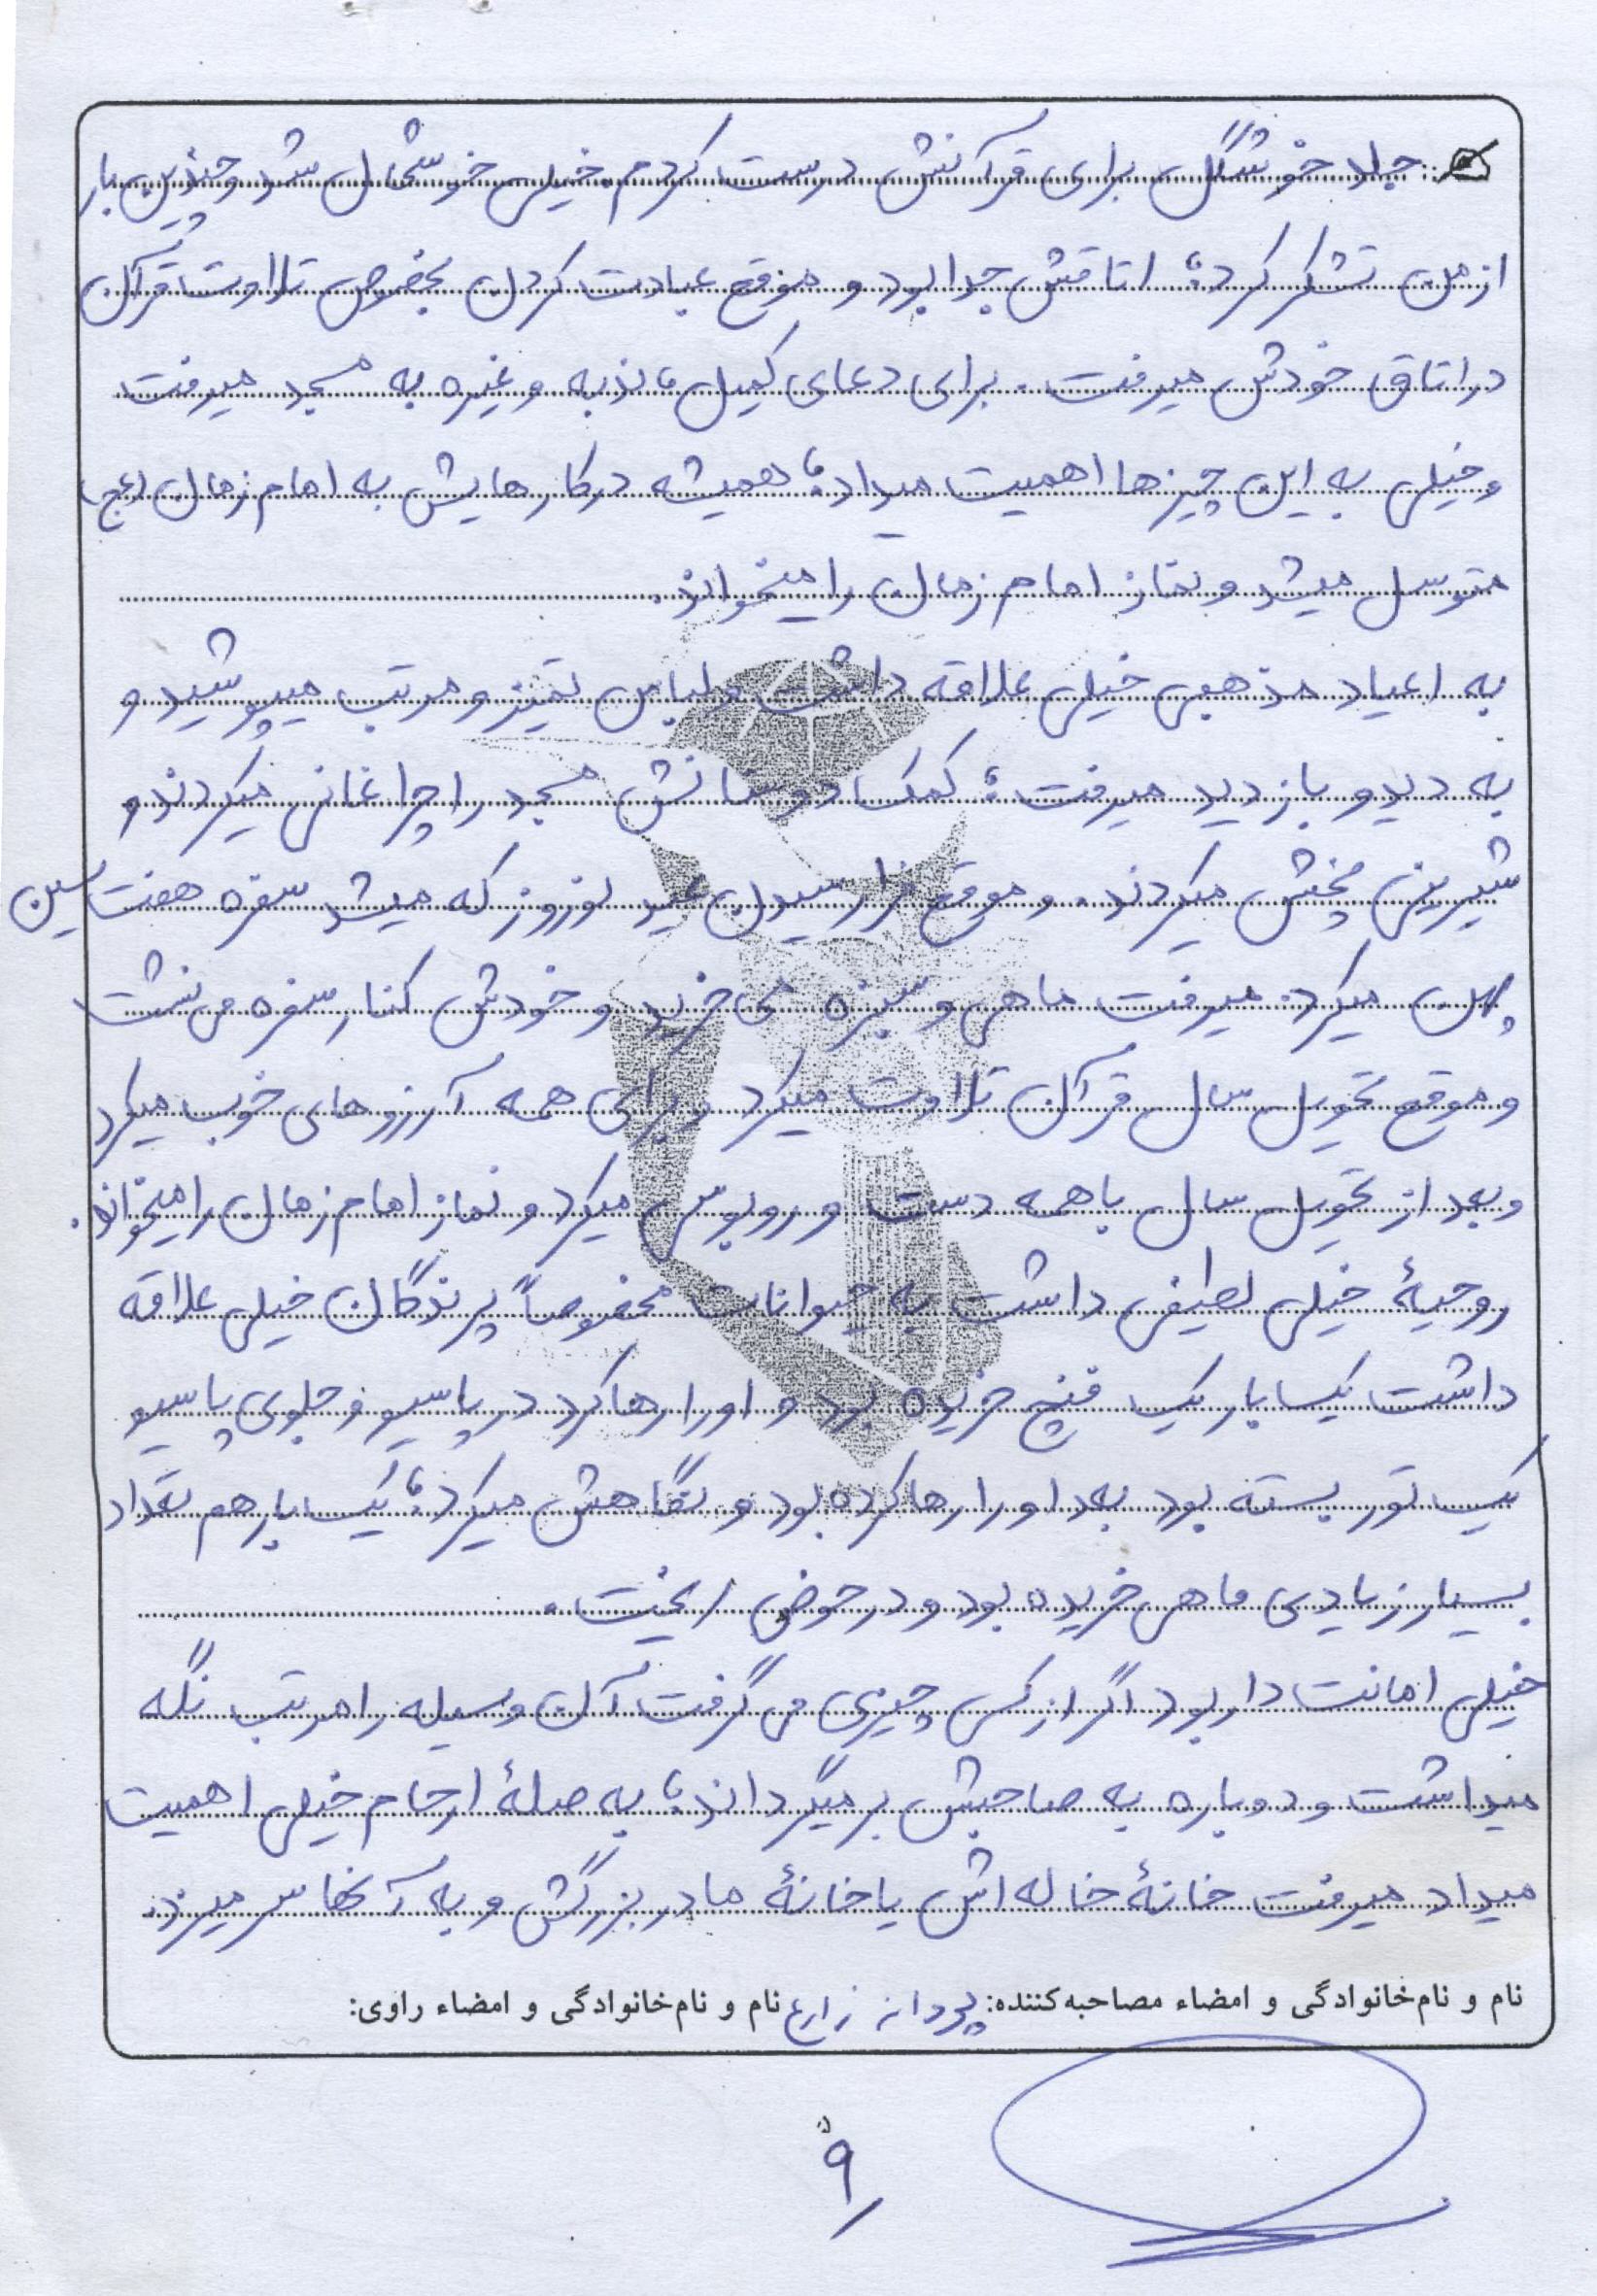 جلد خوشگل برای قرآنش درست کردم خیلی خوشحال شد و چندین بار
از من تشکر کرد؛ اتاقش جدا بود و موقع عبادت کردن بخصوص تلاوت قرآن
در اتاق خودش میرفت. برای دعای کمیل، ندبه و غیره به مسجد میرفت
و خیلی به این چیزها اهمیت میداد؛ همیشه در کارهایش به امام زمان (عج)
متوسل میشد و نماز امام زمان را میخواند.
به اعیاد مذهبی خیلی علاقه داشت و لباس تمیز و مرتب میپوشید و
به دید و بازدید میرفت؛ کمک دوستانش مسجد را چراغانی میکردند و
شیرینی پخش میکردند. و موقع فرا رسیدن عید نوروز که میشد سفره هفت سین
پهن میکرد میرفت ماهی و سبزه می خرید و خودش کنار سفره می نشست
و موقع تحویل سال قرآن تلاوت میکرد و برای همه آرزوهای خوب میکرد
و بعد از تحویل سال با همه دست و روبوسی میکرد و نماز امام زمان را میخواند.
روحیهٔ خیلی لطیفی داشت به حیوانات مخصوصاً پرندگان خیلی علاقه
داشت یک بار یک فنچ خریده بود و او را رها کرد در پاسیو و جلوی پاسیو
یک تور بسته بود بعد او را رها کرده بود و نگاهش میکرد؛ یک بار هم تعداد
بسیار زیادی ماهی خریده بود و در حوض ریخت.
خیلی امانت دار بود اگر از کسی چیزی می گرفت آن وسیله را مرتب نگه
میداشت و دوباره به صاحبش برمیگرداند؛ به صلهٔ ارحام خیلی اهمیت
میداد میرفت خانهٔ خاله اش یا خانهٔ مادربزرگش و به آنها سر میزد.
نام و نام‌خانوادگی و امضاء مصاحبه‌کننده: پروانه زارع نام و نام‌خانوادگی و امضاء راوی:
۹